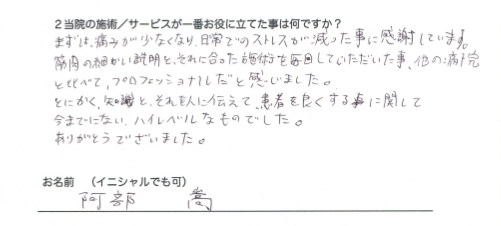 2 当院の施術／サービスが一番お役に立てた事は何ですか？
まずは、痛みが少なくなり、日常でのストレスが減った事に感謝しています。
筋肉の細かい説明と、それに合った施術を毎回していただいた事、他の病院
と比べて、プロフェッショナルだと感じました。
とにかく、知識と、それを人に伝えて、患者を良くする事に関して
今までにない、ハイレベルなものでした。
ありがとうございました。
お名前　（イニシャルでも可）
阿部　嵩